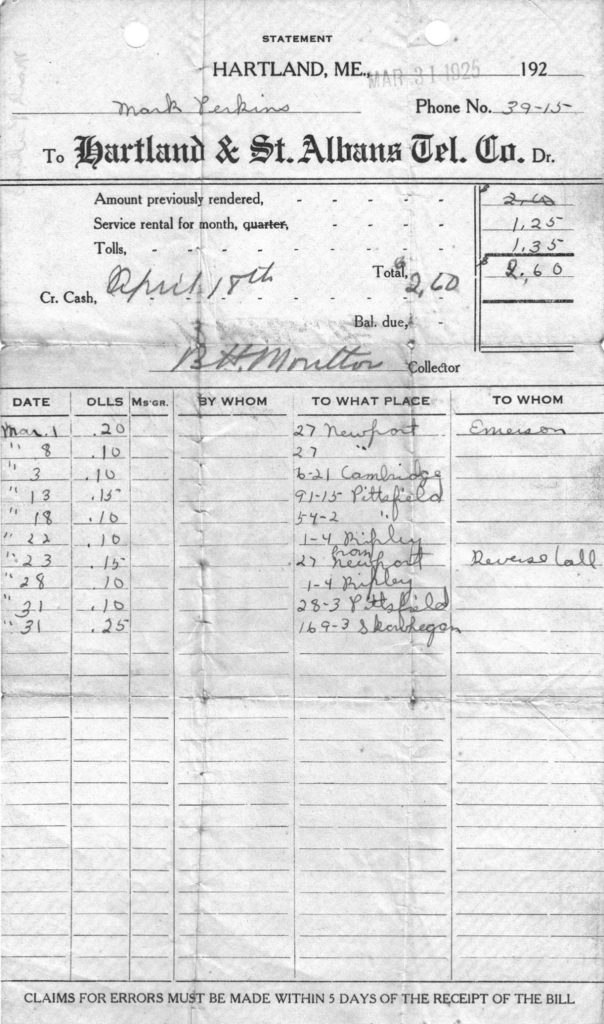 STATEMENT
HARTLAND, ME., MAR 31 1925 192
Mark Perkins Phone No. 39-15
To Hartland & St. Albans Tel. Co. Dr.
Amount previously rendered, - - - - - $ 2,60
Service rental for month, quarter, - - - - 1,25
Tolls, - - - - - - - - 1,35
Total, $ 2,60 $ 2,60
Cr. Cash, April 18th
Bal. due,
B H. Moulton Collector
DATE OLLS Ms'GR. BY WHOM TO WHAT PLACE TO WHOM
Mar. 1 .20 27 Newport Emerson
" 8 .10 27 "
" 3 .10 6-21 Cambridge
" 13 .15 91-15 Pittsfield
" 18 .10 54-2 "
" 22 .10 1-4 Ripley
" 23 .15 27 from Newport Reverse Call
" 28 .10 1-4 Ripley
" 31 .10 28-3 Pittsfield
" 31 .25 169-3 Skowhegan
CLAIMS FOR ERRORS MUST BE MADE WITHIN 5 DAYS OF THE RECEIPT OF THE BILL